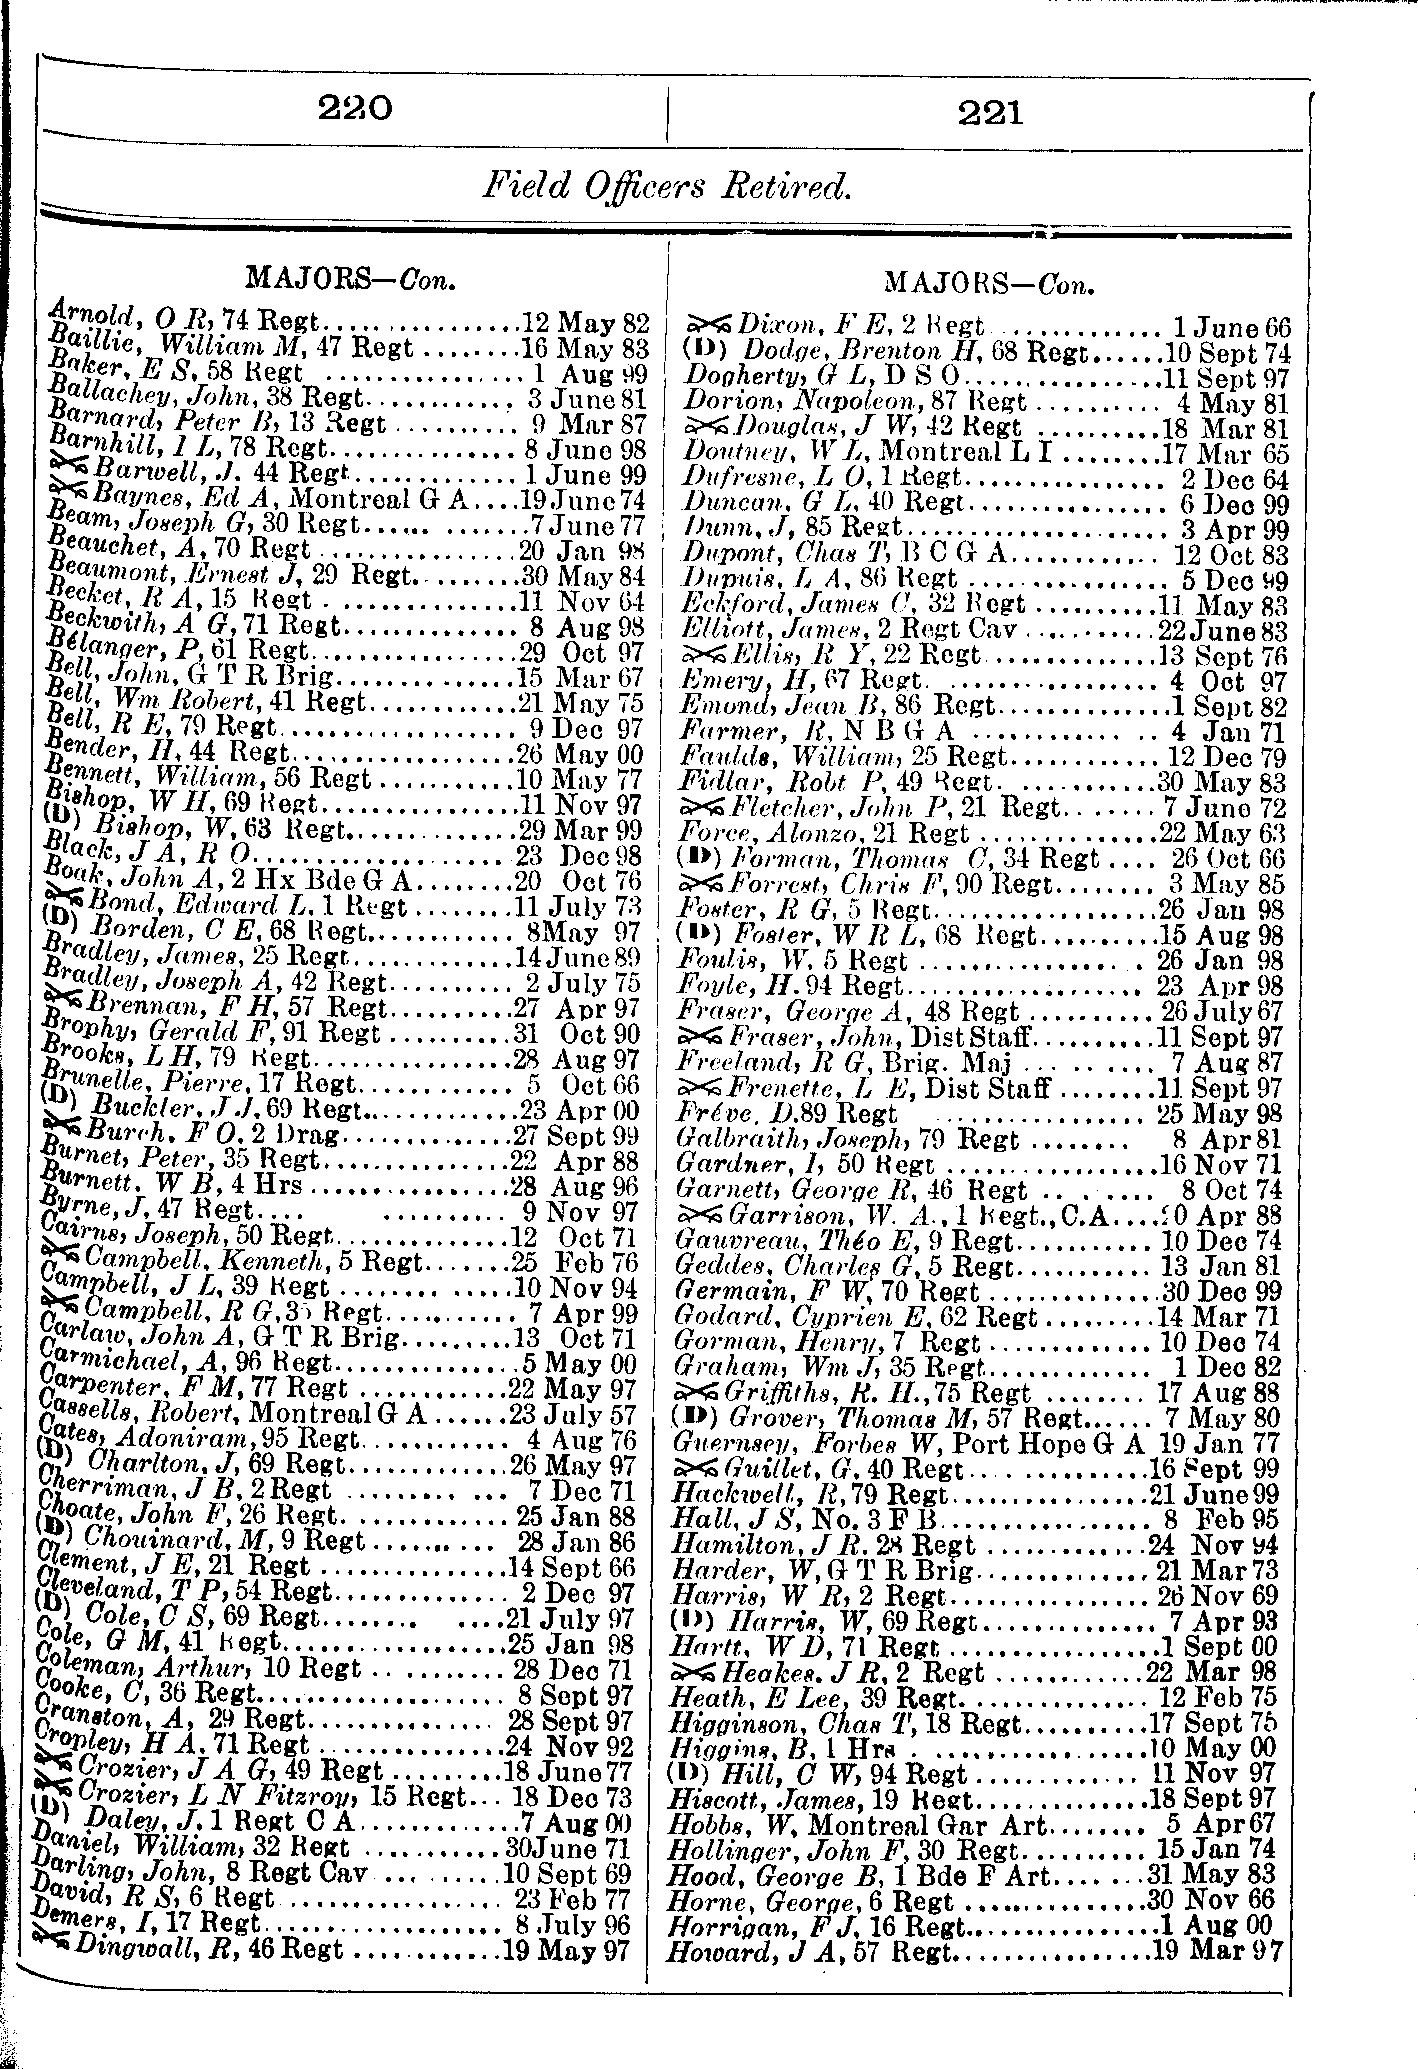 220
221
Field Officers Retired.
MAJORS—Con.
Arnold, O R, 74 Regt................12 May 82
Baillie, William M, 47 Regt ........16 May 83
Baker, E S, 58 Regt ................ 1 Aug 99
Ballachey, John, 38 Regt............ 3 June 81
Barnard, Peter B, 13 Regt .......... 9 Mar 87
Barnhill, I L, 78 Regt.............. 8 June 98
Barwell, J. 44 Regt............ 1 June 99
Baynes, Ed A, Montreal G A....19 June 74
Beam, Joseph G, 30 Regt...... .......7 June 77
Beauchet, A, 70 Regt ...............20 Jan 98
Beaumont, Ernest J, 29 Regt.........30 May 84
Becket, R A, 15 Regt . .............11 Nov 64
Beckwith, A G, 71 Regt.............. 8 Aug 98
Bélanger, P, 61 Regt................29 Oct 97
Bell, John, G T R Brig..............15 Mar 67
Bell, Wm Robert, 41 Regt............21 May 75
Bell, R E, 79 Regt.................. 9 Dec 97
Bender, H, 44 Regt..................26 May 00
Bennett, William, 56 Regt ..........10 May 77
Bishop, W H, 69 Regt................11 Nov 97
(D) Bishop, W, 63 Regt..............29 Mar 99
Black, J A, R O..................... 23 Dec 98
Boak, John A, 2 Hx Bde G A........20 Oct 76
Bond, Edward L, 1 Regt ........11 July 73
(D) Borden, C E, 68 Regt............ 8 May 97
Bradley, James, 25 Regt.............14 June 89
Bradley, Joseph A, 42 Regt.......... 2 July 75
Brennan, F H, 57 Regt..........27 Apr 97
Brophy, Gerald F, 91 Regt ..........31 Oct 90
Brooks, L H, 79 Regt................28 Aug 97
Brunelle, Pierre, 17 Regt........... 5 Oct 66
(D) Buckler, J J, 69 Regt............23 Apr 00
Burch, F O. 2 Drag.............27 Sept 99
Burnet, Peter, 35 Regt..............22 Apr 88
Burnett. W B, 4 Hrs ................28 Aug 96
Byrne, J, 47 Regt.... .......... 9 Nov 97
Cairns, Joseph, 50 Regt.............12 Oct 71
Campbell, Kenneth, 5 Regt.......25 Feb 76
Campbell, J L, 39 Regt ........ .....10 Nov 94
Campbell, R G, Regt........... 7 Apr 99
Carlaw, John A, G T R Brig..........13 Oct 71
Carmichael, A, 96 Regt...............5 May 00
Carpenter, F M, 77 Regt ............22 May 97
Cassells, Robert, Montreal G A......23 July 57
Cates, Adoniram, 95 Regt............ 4 Aug 76
(D) Charlton, J, 69 Regt............26 May 97
Cherriman, J B, 2 Regt ......... ... 7 Dec 71
Choate, John F, 26 Regt............. 25 Jan 88
(D) Chouinard, M, 9 Regt........ ... 28 Jan 86
Clement, J E, 21 Regt ..............14 Sept 66
Cleveland, T P, 54 Regt............. 2 Dec 97
(D) Cole, C S, 69 Regt........ ....21 July 97
Cole, G M, 41 Regt..................25 Jan 98
Coleman, Arthur, 10 Regt .. ........ 28 Dec 71
Cooke, C, 36 Regt................... 8 Sept 97
Cranston, A, 29 Regt................ 28 Sept 97
Cropley, H A, 71 Regt ..............24 Nov 92
Crozier, J A G, 49 Regt .........18 June 77
Crozier, L N Fitzroy, 15 Regt... 18 Dec 73
(D) Daley, J. 1 Regt C A.............7 Aug 00
Daniel, William, 32 Regt ...........30 June 71
Darling, John, 8 Regt Cav ... .......10 Sept 69
David, R S, 6 Regt ................. 23 Feb 77
Demers, I, 17 Regt.................. 8 July 96
Dingwall, R, 46 Regt ............19 May 97
MAJORS—Con.
Dixon, F E, 2 Regt .............. 1 June 66
(D) Dodge, Brenton H, 68 Regt......10 Sept 74
Dogherty, G L, D S O................11 Sept 97
Dorion, Napoleon, 87 Regt .......... 4 May 81
Douglas, J W, 42 Regt ..........18 Mar 81
Doutney, W L, Montreal L I ........17 Mar 65
Dufresne, L O, 1 Regt............... 2 Dec 64
Duncan, G L, 40 Regt................ 6 Dec 99
Dunn, J, 85 Regt.................... 3 Apr 99
Dupont, Chas T, B C G A............. 12 Oct 83
Dupuis, L A, 86 Regt ............... 5 Dec 99
Eckford, James C, 32 Regt ..........11 May 83
Elliott, James, 2 Regt Cav ..........22 June 83
Ellis, R Y, 22 Regt.............13 Sept 76
Emery, H, 67 Regt. ................. 4 Oct 97
Emond, Jean B, 86 Regt..............1 Sept 82
Farmer, R, N B G A ............. .. 4 Jan 71
Faulds, William, 25 Regt............ 12 Dec 79
Fidlar, Robt P, 49 Regt. ...........30 May 83
Fletcher, John P, 21 Regt....... 7 June 72
Force, Alonzo, 21 Regt .............22 May 63
(D) Forman, Thomas C, 34 Regt .... 26 Oct 66
Forrest, Chris F, 90 Regt........ 3 May 85
Foster, R G, 5 Regt.................26 Jan 98
(D) Foster, W R L, 68 Regt..........15 Aug 98
Foulis, W, 5 Regt ................ . 26 Jan 98
Foyle, H. 94 Regt................... 23 Apr 98
Fraser, George A, 48 Regt .......... 26 July 67
Fraser, John, Dist Staff..........11 Sept 97
Freeland, R G, Brig. Maj ... .. .... 7 Aug 87
Frenette, L E, Dist Staff ........11 Sept 97
Fréve, D. 89 Regt ................ 25 May 98
Galbraith, Joseph, 79 Regt ........ 8 Apr 81
Gardner, I, 50 Regt .................16 Nov 71
Garnett, George R, 46 Regt .. . .... 8 Oct 74
Garrison, W. A., 1 Regt., C.A.... Apr 88
Gauvreau, Théo E, 9 Regt............ 10 Dec 74
Geddes, Charles G, 5 Regt........... 13 Jan 81
Germain, F W, 70 Regt ..............30 Dec 99
Godard, Cyprien E, 62 Regt .........14 Mar 71
Gorman, Henry, 7 Regt ............. 10 Dec 74
Graham, Wm J, 35 Regt.............. 1 Dec 82
Griffiths, R. H., 75 Regt ........ 17 Aug 88
(D) Grover, Thomas M, 57 Regt...... 7 May 80
Guernsey, Forbes W, Port Hope G A 19 Jan 77
Guillet, G. 40 Regt...............16 Sept 99
Hackwell, R, 79 Regt................21 June 99
Hall, J S, No. 3 F B................. 8 Feb 95
Hamilton, J R. 28 Regt .............24 Nov 94
Harder, W, G T R Brig............... 21 Mar 73
Harris, W R, 2 Regt................. 26 Nov 69
(D) Harris, W, 69 Regt.............. 7 Apr 93
Hartt, W D, 71 Regt .................1 Sept 00
Heakes, J R, 2 Regt .............22 Mar 98
Heath, E Lee, 39 Regt............... 12 Feb 75
Higginson, Chas T, 18 Regt..........17 Sept 75
Higgins, B, 1 Hrs . ................10 May 00
(D) Hill, C W, 94 Regt ............. 11 Nov 97
Hiscott, James, 19 Regt.............18 Sept 97
Hobbs, W, Montreal Gar Art........ 5 Apr 67
Hollinger, John F, 30 Regt.......... 15 Jan 74
Hood, George B, 1 Bde F Art.... ...31 May 83
Horne, George, 6 Regt ..............30 Nov 66
Horrigan, F J, 16 Regt...............1 Aug 00
Howard, J A, 57 Regt................19 Mar 97